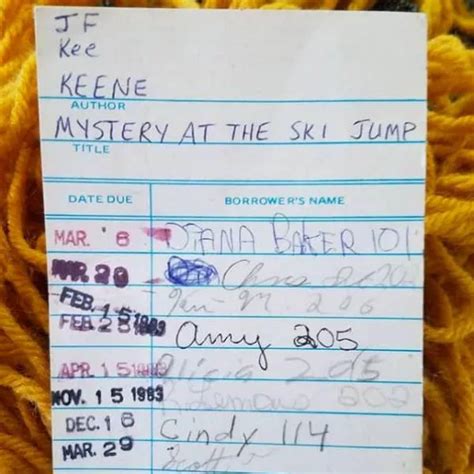 JF
Kee
KEENE
AUTHOR
MYSTERY AT THE SKI JUMP
TITLE
DATE DUE BORROWER'S NAME
MAR. 6 DIANA BAKER 101
MAR. 20 Chris
FEB. 15 1983 206
FEB 28 1983 Amy 205
APR. 15 1983 Alicia 205
NOV. 15 1983 202
DEC. 16 Cindy 114
MAR. 29 Scott